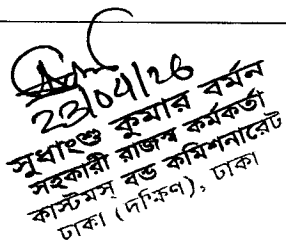 23/04/26
সুধাংশু কুমার বর্মন
সহকারী রাজস্ব কর্মকর্তা
কাস্টমস্ বন্ড কমিশনারেট
ঢাকা (দক্ষিণ), ঢাকা